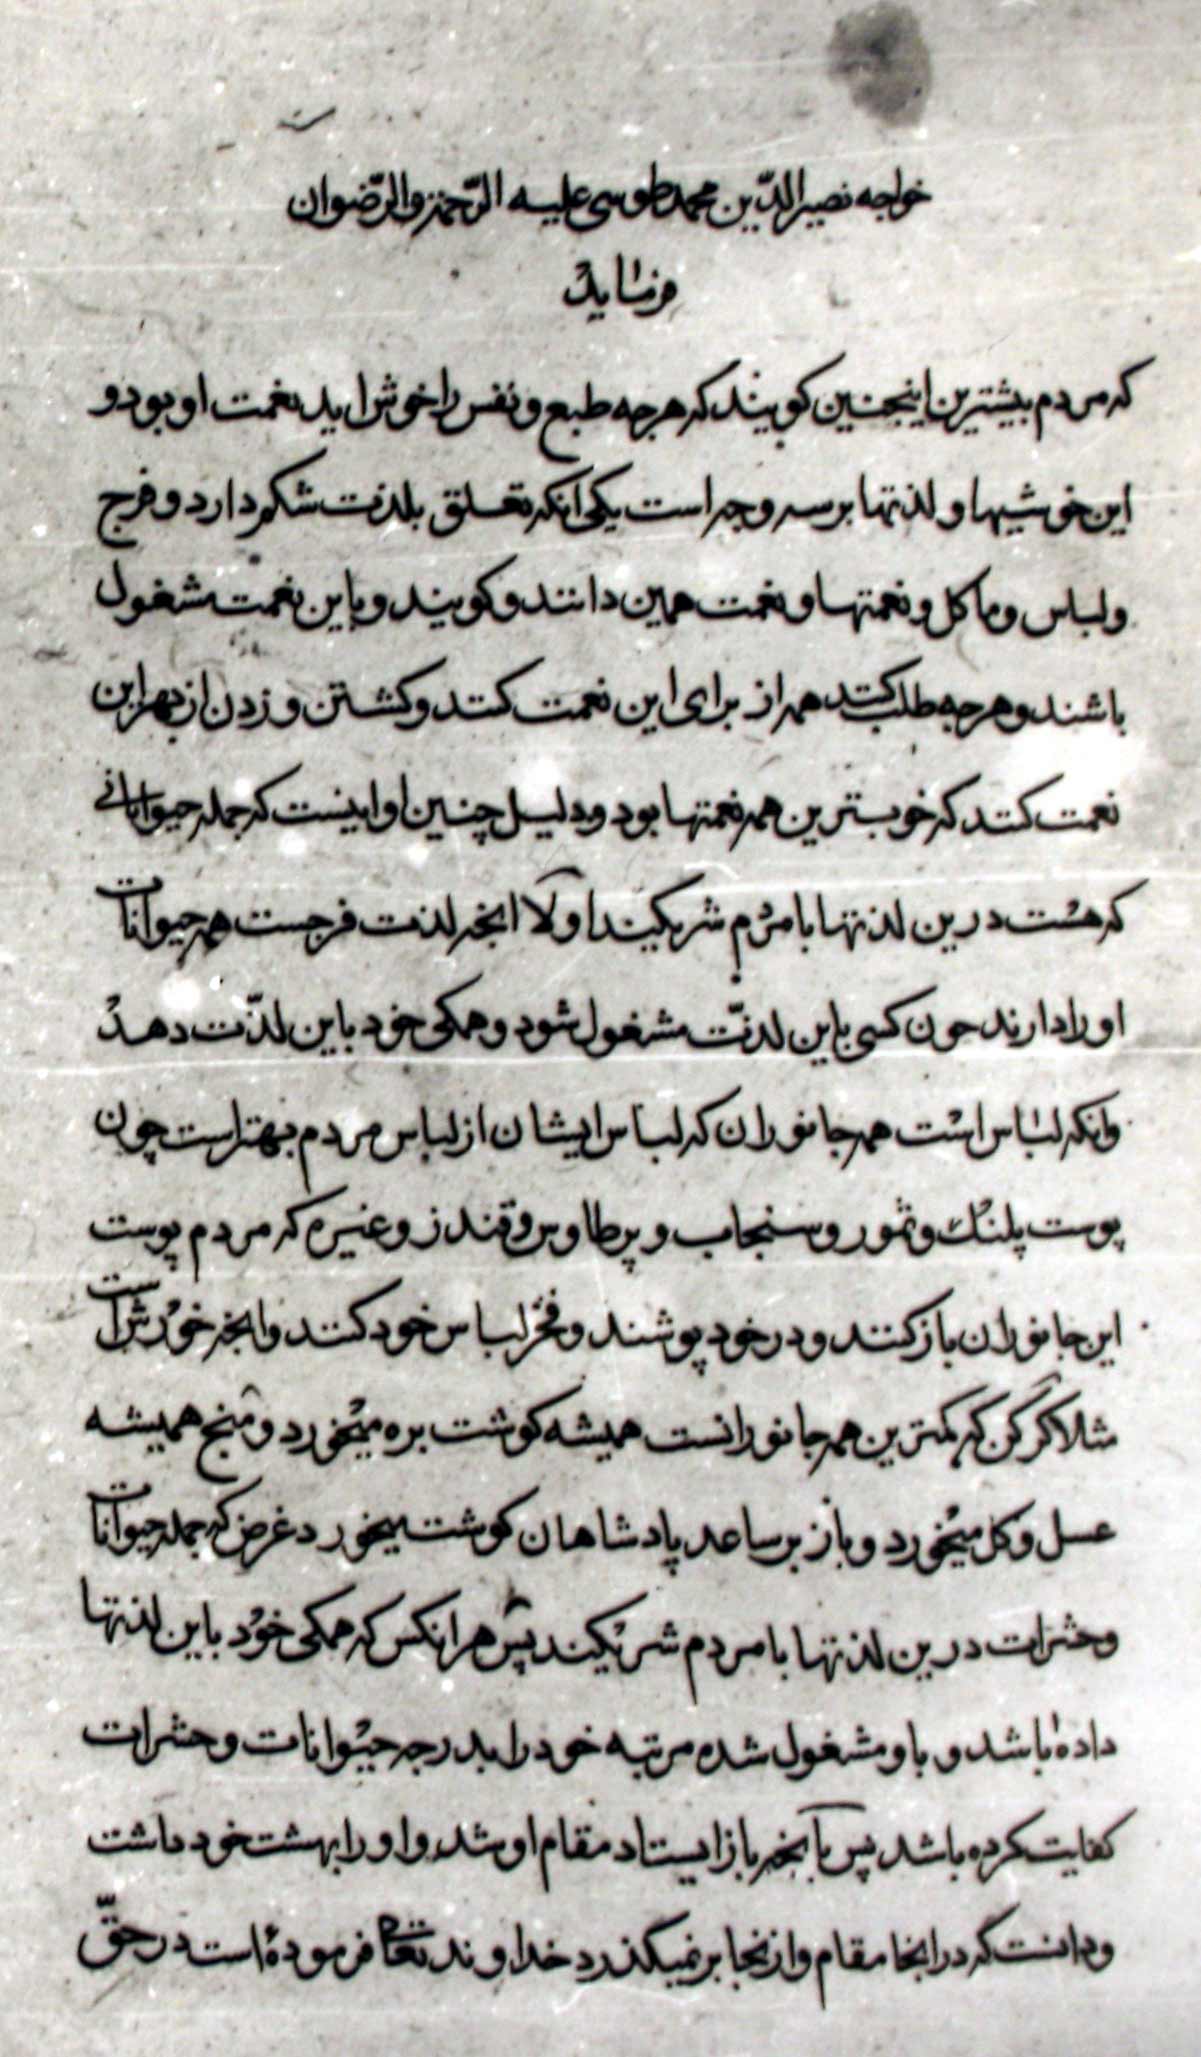 خواجه نصیر الدّین محمد طوسی علیه الرّحمة والرّضوان
فرماید
که مردم بیشترین اینجنین کویند که هرجه طبع و نفس را خوش اید نعمت او بود و
این خوشیها و لذتها بر سه وجه است یکی انکه تعلق بلذت شکم دارد و فرج
و لباس و ماکل و نعمتها و نعمت همین دانند و کویند و باین نعمت مشغول
باشند و هرجه طلب کنند همه از برای این نعمت کنند و کشتن و زدن از بهر این
نعمت کنند که خوبترین همه نعمتها بود و دلیل چنین اواینست که جمله حیواناتی
که هست درین لذتها با مردم شریکیند اولا انجه لذت فرجست همه حیوانات
او را دارند جون کسی باین لذّت مشغول شود و همکی خود باین لذّت دهد
وانکه لباس است همه جانوران که لباس ایشان از لباس مردم بهتر است چون
پوست پلنک و سمور و سنجاب و پر طاوس و قندز و غیره که مردم پوست
این جانوران باز کنند و در خود پوشند و فخر لباس خود کنند وانجه خورش است
مثلا کرکن که کمترین همه جانورانست همیشه کوشت بره میخورد و منج همیشه
عسل و کل میخورد و باز بر ساعد پادشاهان کوشت میخورد غرض که جمله حیوانات
و حشرات درین لذتها با مردم شریکیند پس هر انکس که همکی خود باین لذتها
داده باشد و باو مشغول شده مرتبه خود را بدرجه حیوانات و حشرات
کفایت کرده باشد پس بآنجه باز ایستاد مقام او شد و او را بهشت خود داشت
و دانست که در انجا مقام و از نجا بر نمیکذرد خداوند تعالی فرموده است در حقّ